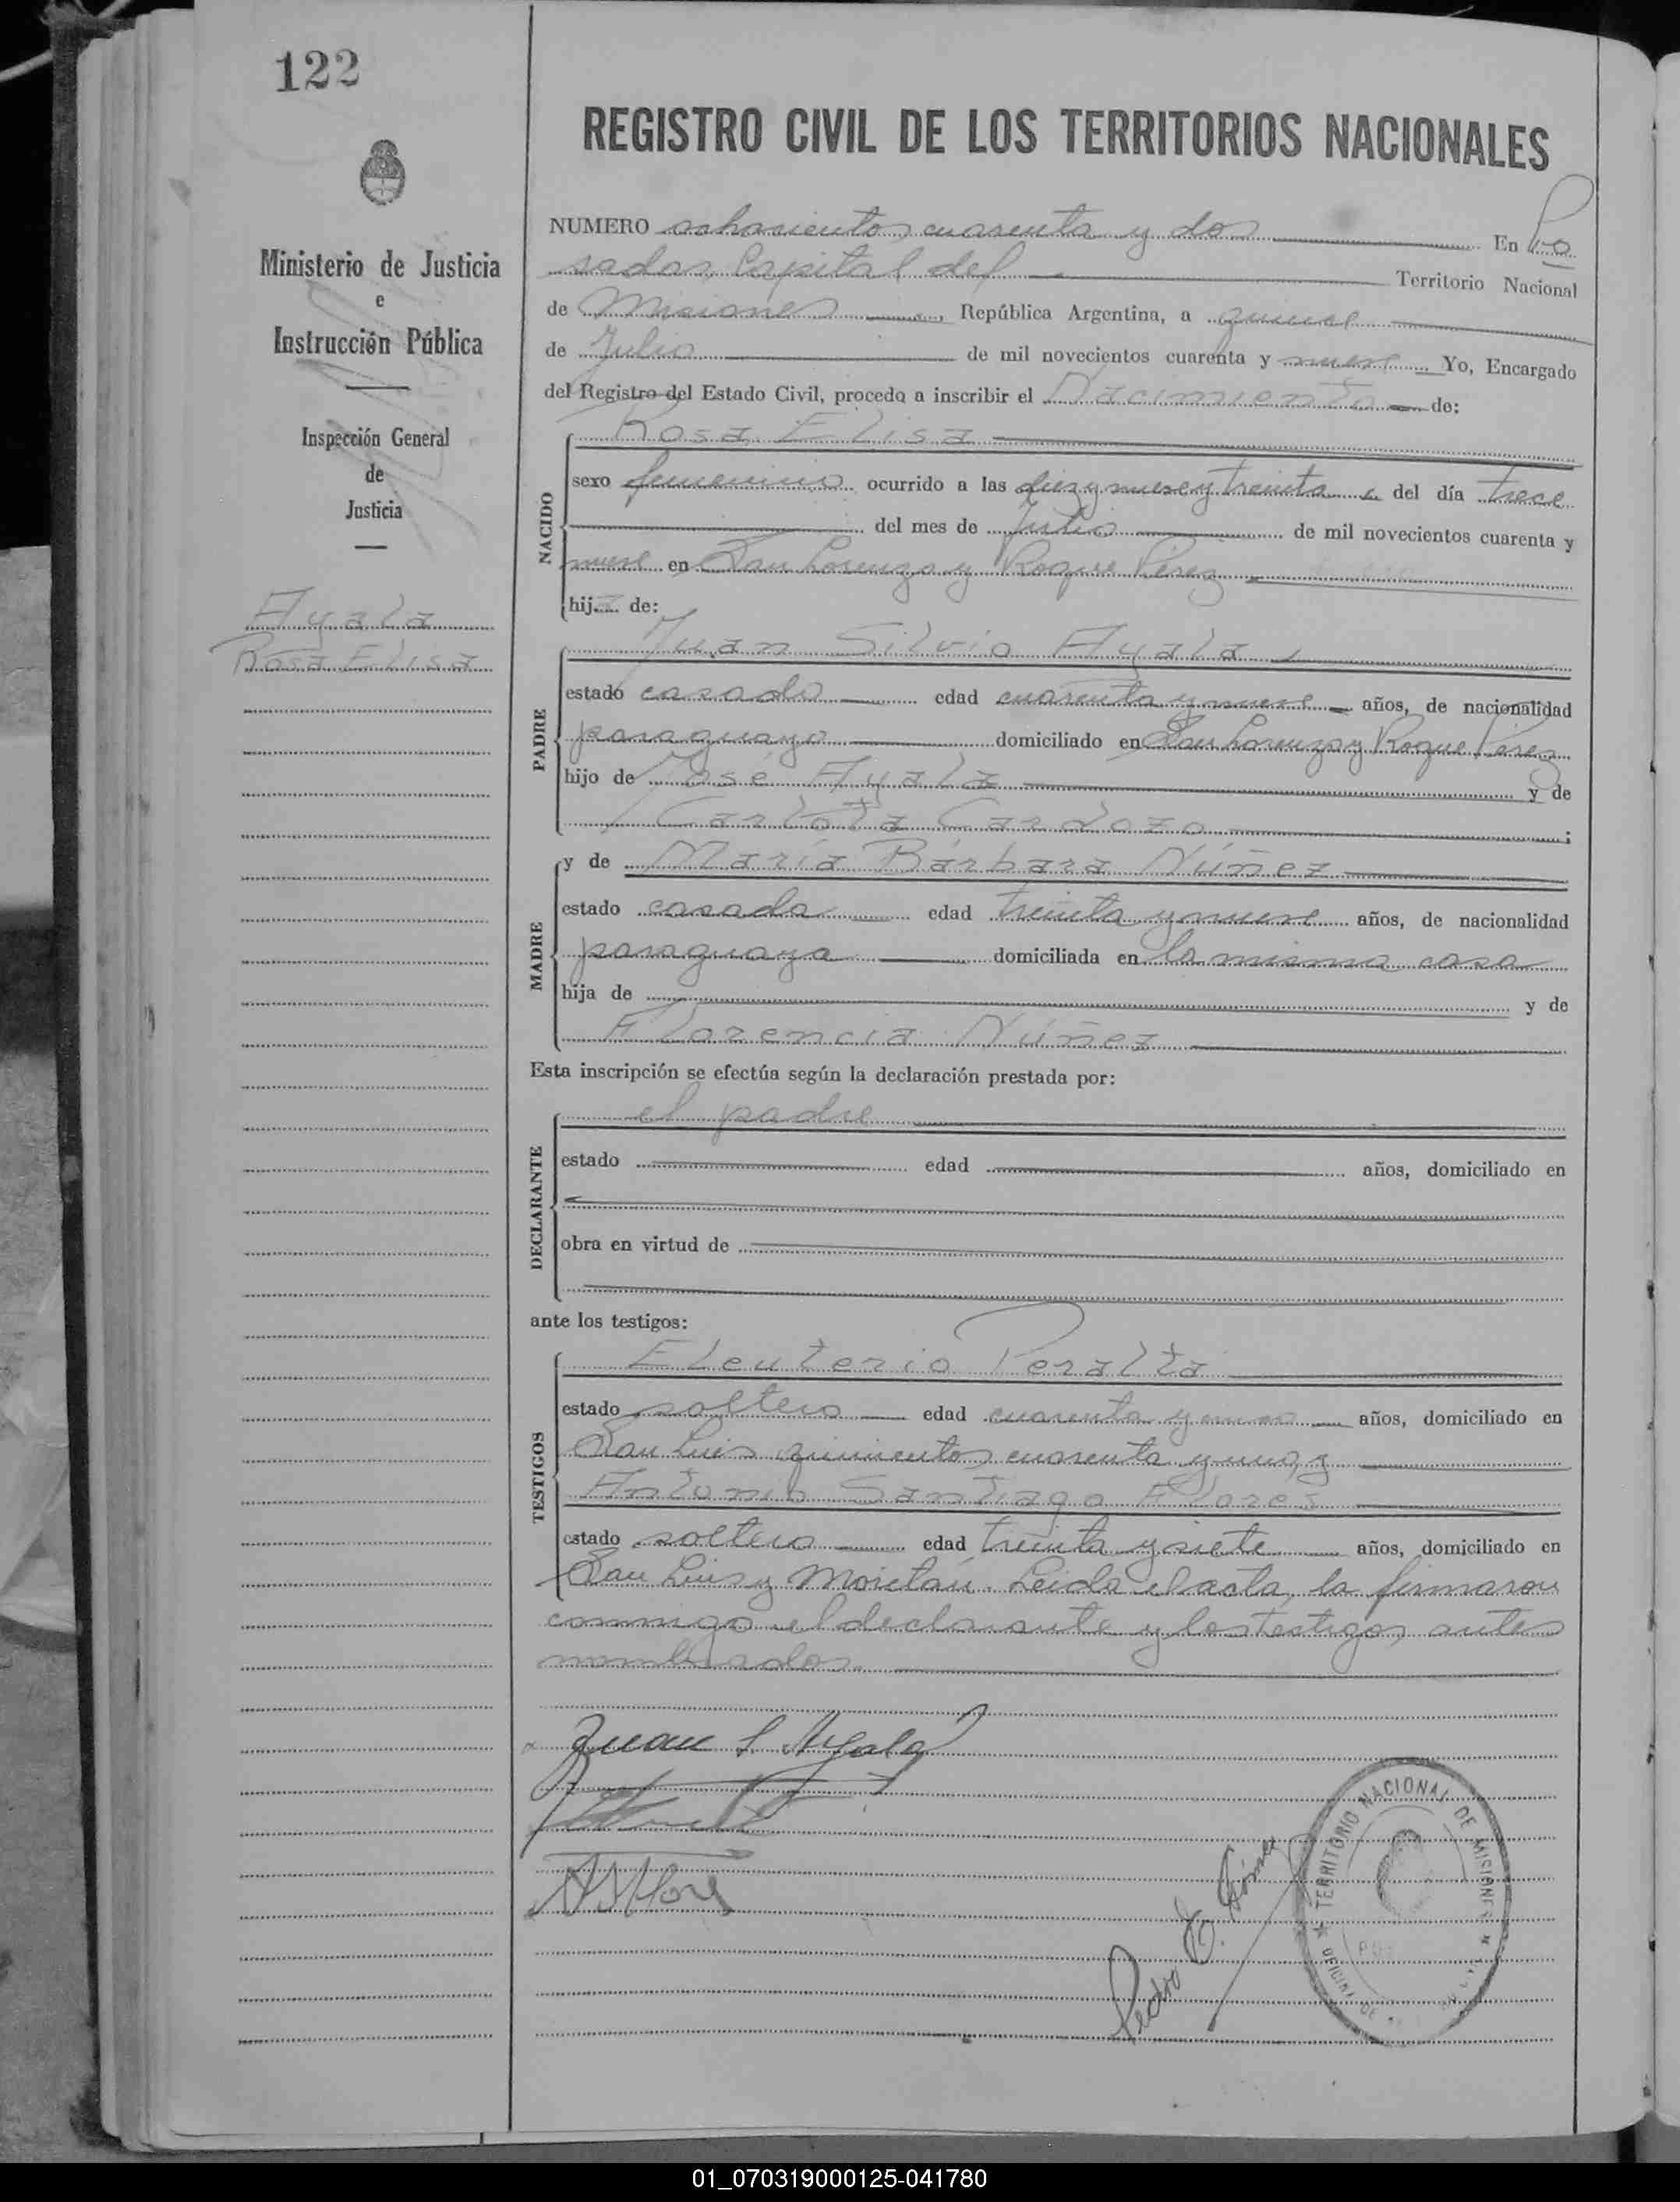 122
Ministerio de Justicia
e
Instrucción Pública
Inspección General
de
Justicia
Ayala
Rosa Elisa
REGISTRO CIVIL DE LOS TERRITORIOS NACIONALES
NUMERO ochocientos cuarenta y dos En Po
sadas, Capital del Territorio Nacional
de Misiones, República Argentina, a quince
de Julio de mil novecientos cuarenta y nueve Yo, Encargado
del Registro del Estado Civil, procedo a inscribir el Nacimiento de:
NACIDO
Rosa Elisa
sexo femenino ocurrido a las diez y nueve y treinta del día trece
del mes de Julio de mil novecientos cuarenta y
nueve en San Lorenzo y Roque Pérez
hija de:
PADRE
Juan Silvio Ayala
estado casado edad cuarenta y nueve años, de nacionalidad
paraguayo domiciliado en San Lorenzo y Roque Pérez
hijo de José Ayala y de
Carlota Cardozo ;
MADRE
y de María Bárbara Núñez
estado casada edad treinta y nueve años, de nacionalidad
paraguaya domiciliada en la misma casa
hija de y de
Florencia Núñez
Esta inscripción se efectúa según la declaración prestada por:
DECLARANTE
el padre
estado edad años, domiciliado en
obra en virtud de
ante los testigos:
TESTIGOS
Eleuterio Peralta
estado soltero edad cuarenta y años, domiciliado en
San Luis quinientos cuarenta y uno, y
Antonio Santiago Flores
estado soltero edad treinta y siete años, domiciliado en
San Luis y Moritán. Leida el acta, la firmaron
conmigo el declarante y los testigos antes
nombrados.
Juan S. Ayala
A S Flores
Pedro Gómez
TERRITORIO NACIONAL DE MISIONES
OFICINA DE
01_070319000125-041780